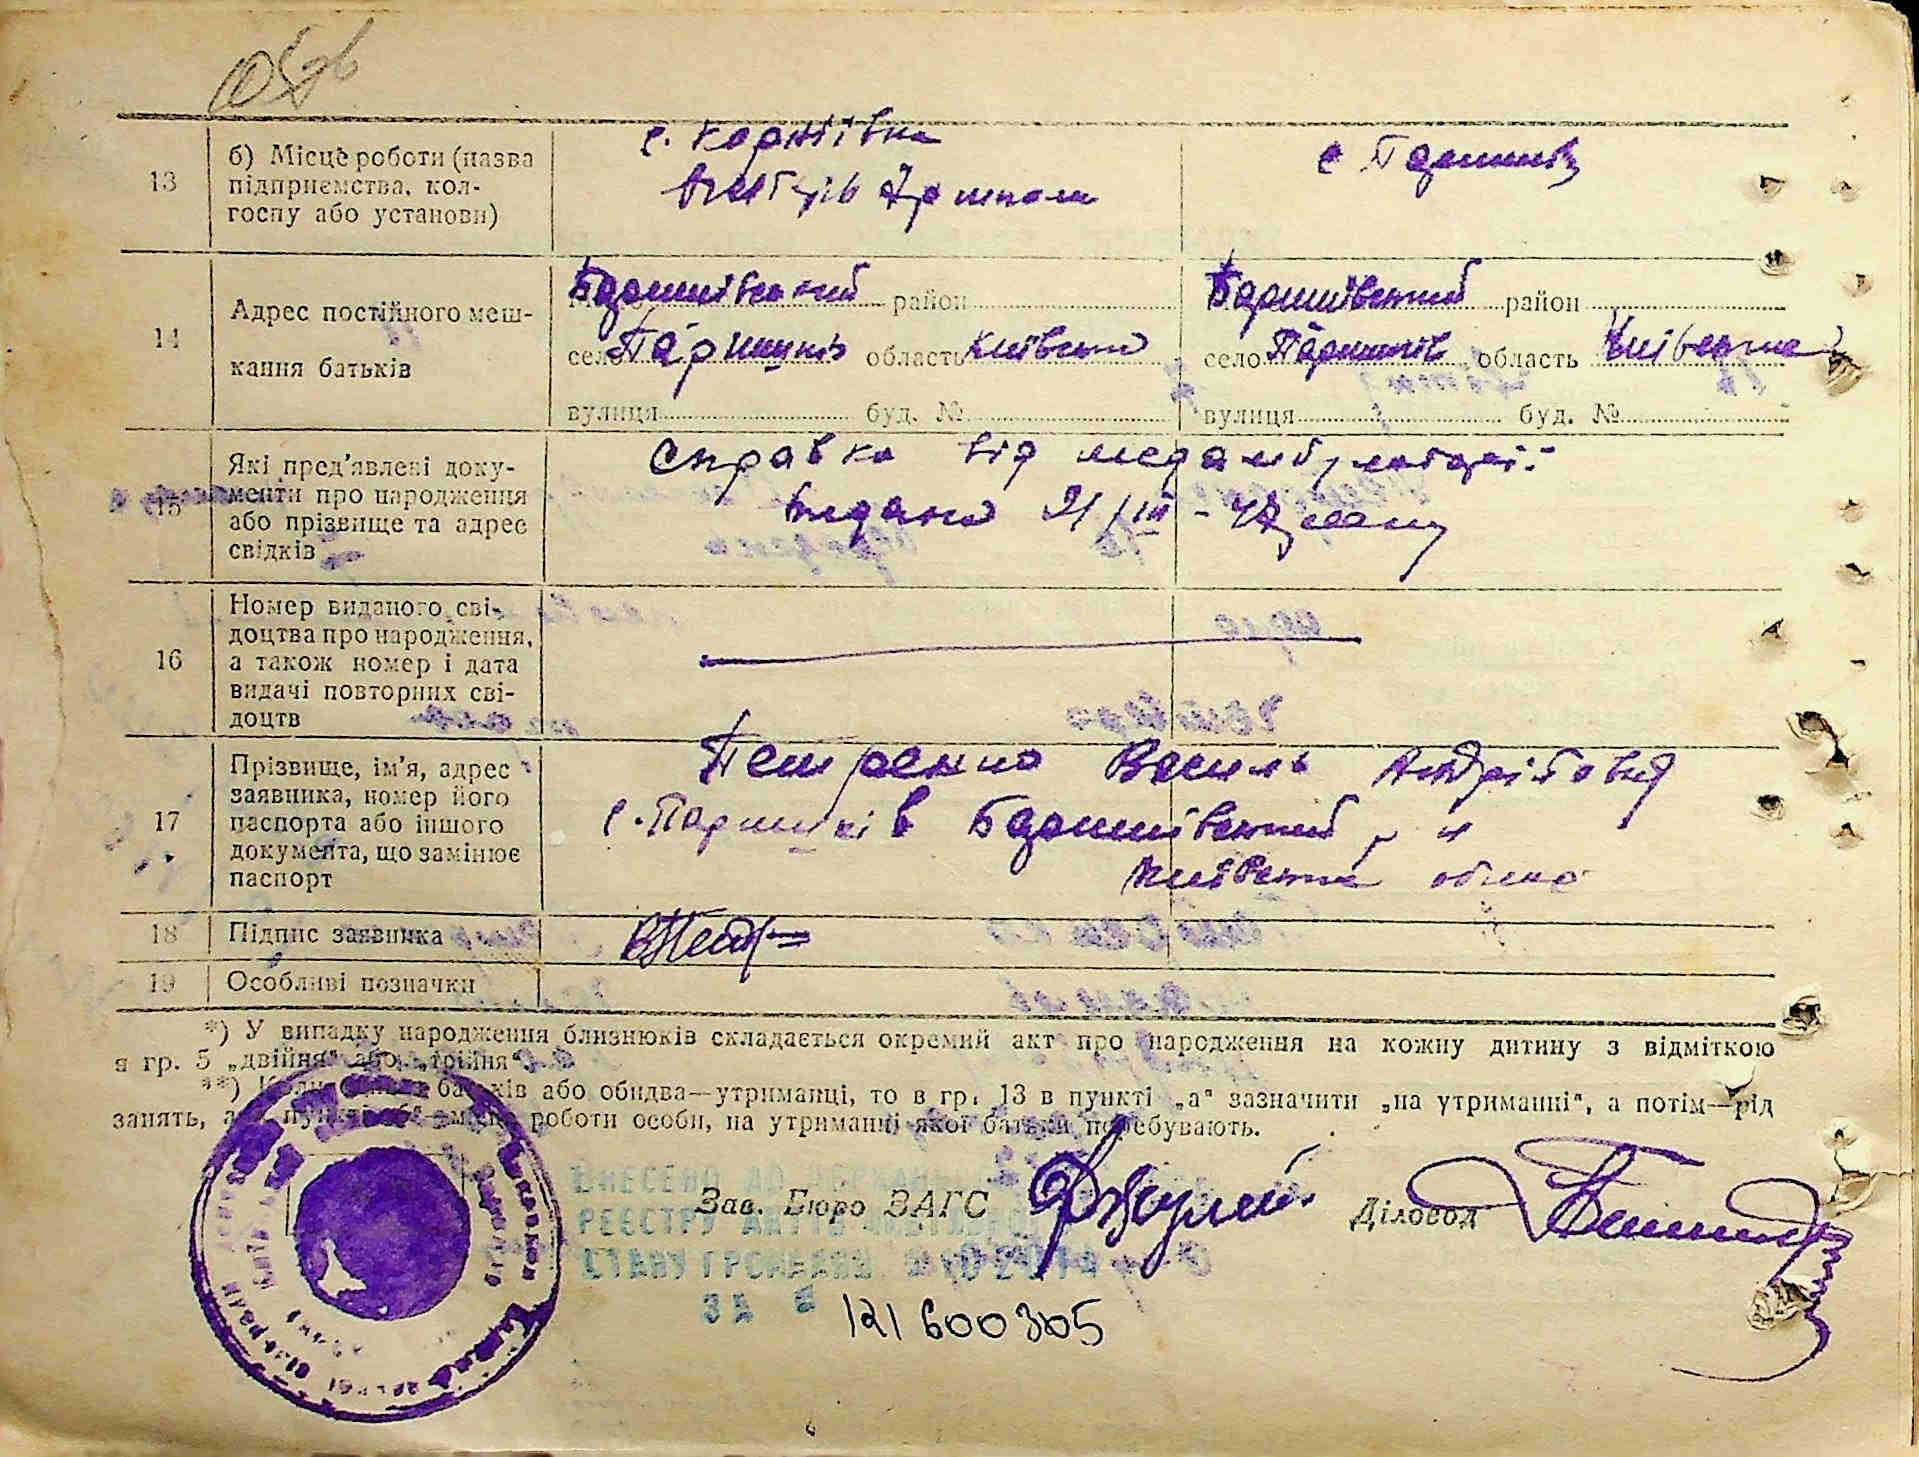 13
б) Місце роботи (назва
підприємства, кол-
госпу або установи)
с. Коржіївка
с Паришків
14
Адрес постійного меш-
кання батьків
Баришівський район
село Паришків область Київська
вулиця буд. №
Баришівський район
село Паришків область Київська
вулиця буд. №
15
Які пред'явлені доку-
менти про народження
або прізвище та адрес
свідків
Справка від медамбулаторії
видана 21/III - 47 року
16
Номер виданого сві-
доцтва про народження,
а також номер і дата
видачі повторних сві-
доцтв
17
Прізвище, ім'я, адрес
заявника, номер його
паспорта або іншого
документа, що замінює
паспорт
Петренко Василь Андрійович
с. Паришків Баришівський р-н
Київська обл
18
Підпис заявника
19
Особливі позначки
*) У випадку народження близнюків складається окремий акт про народження на кожну дитину з відміткою
в гр. 5 „двійня“ або „трійня“.
**) Коли батьків або обидва—утриманці, то в гр. 13 в пункті „а“ зазначити „на утриманні“, а потім—рід
занять, а в пункті „б“— місце роботи особи, на утриманні якої батьки перебувають.
ВНЕСЕНО ДО ДЕРЖАВНОГО
РЕЄСТРУ АКТІВ ЦИВІЛЬНОГО
СТАНУ ГРОМАДЯН
ЗА №
121600305
Зав. Бюро ЗАГС
Діловод